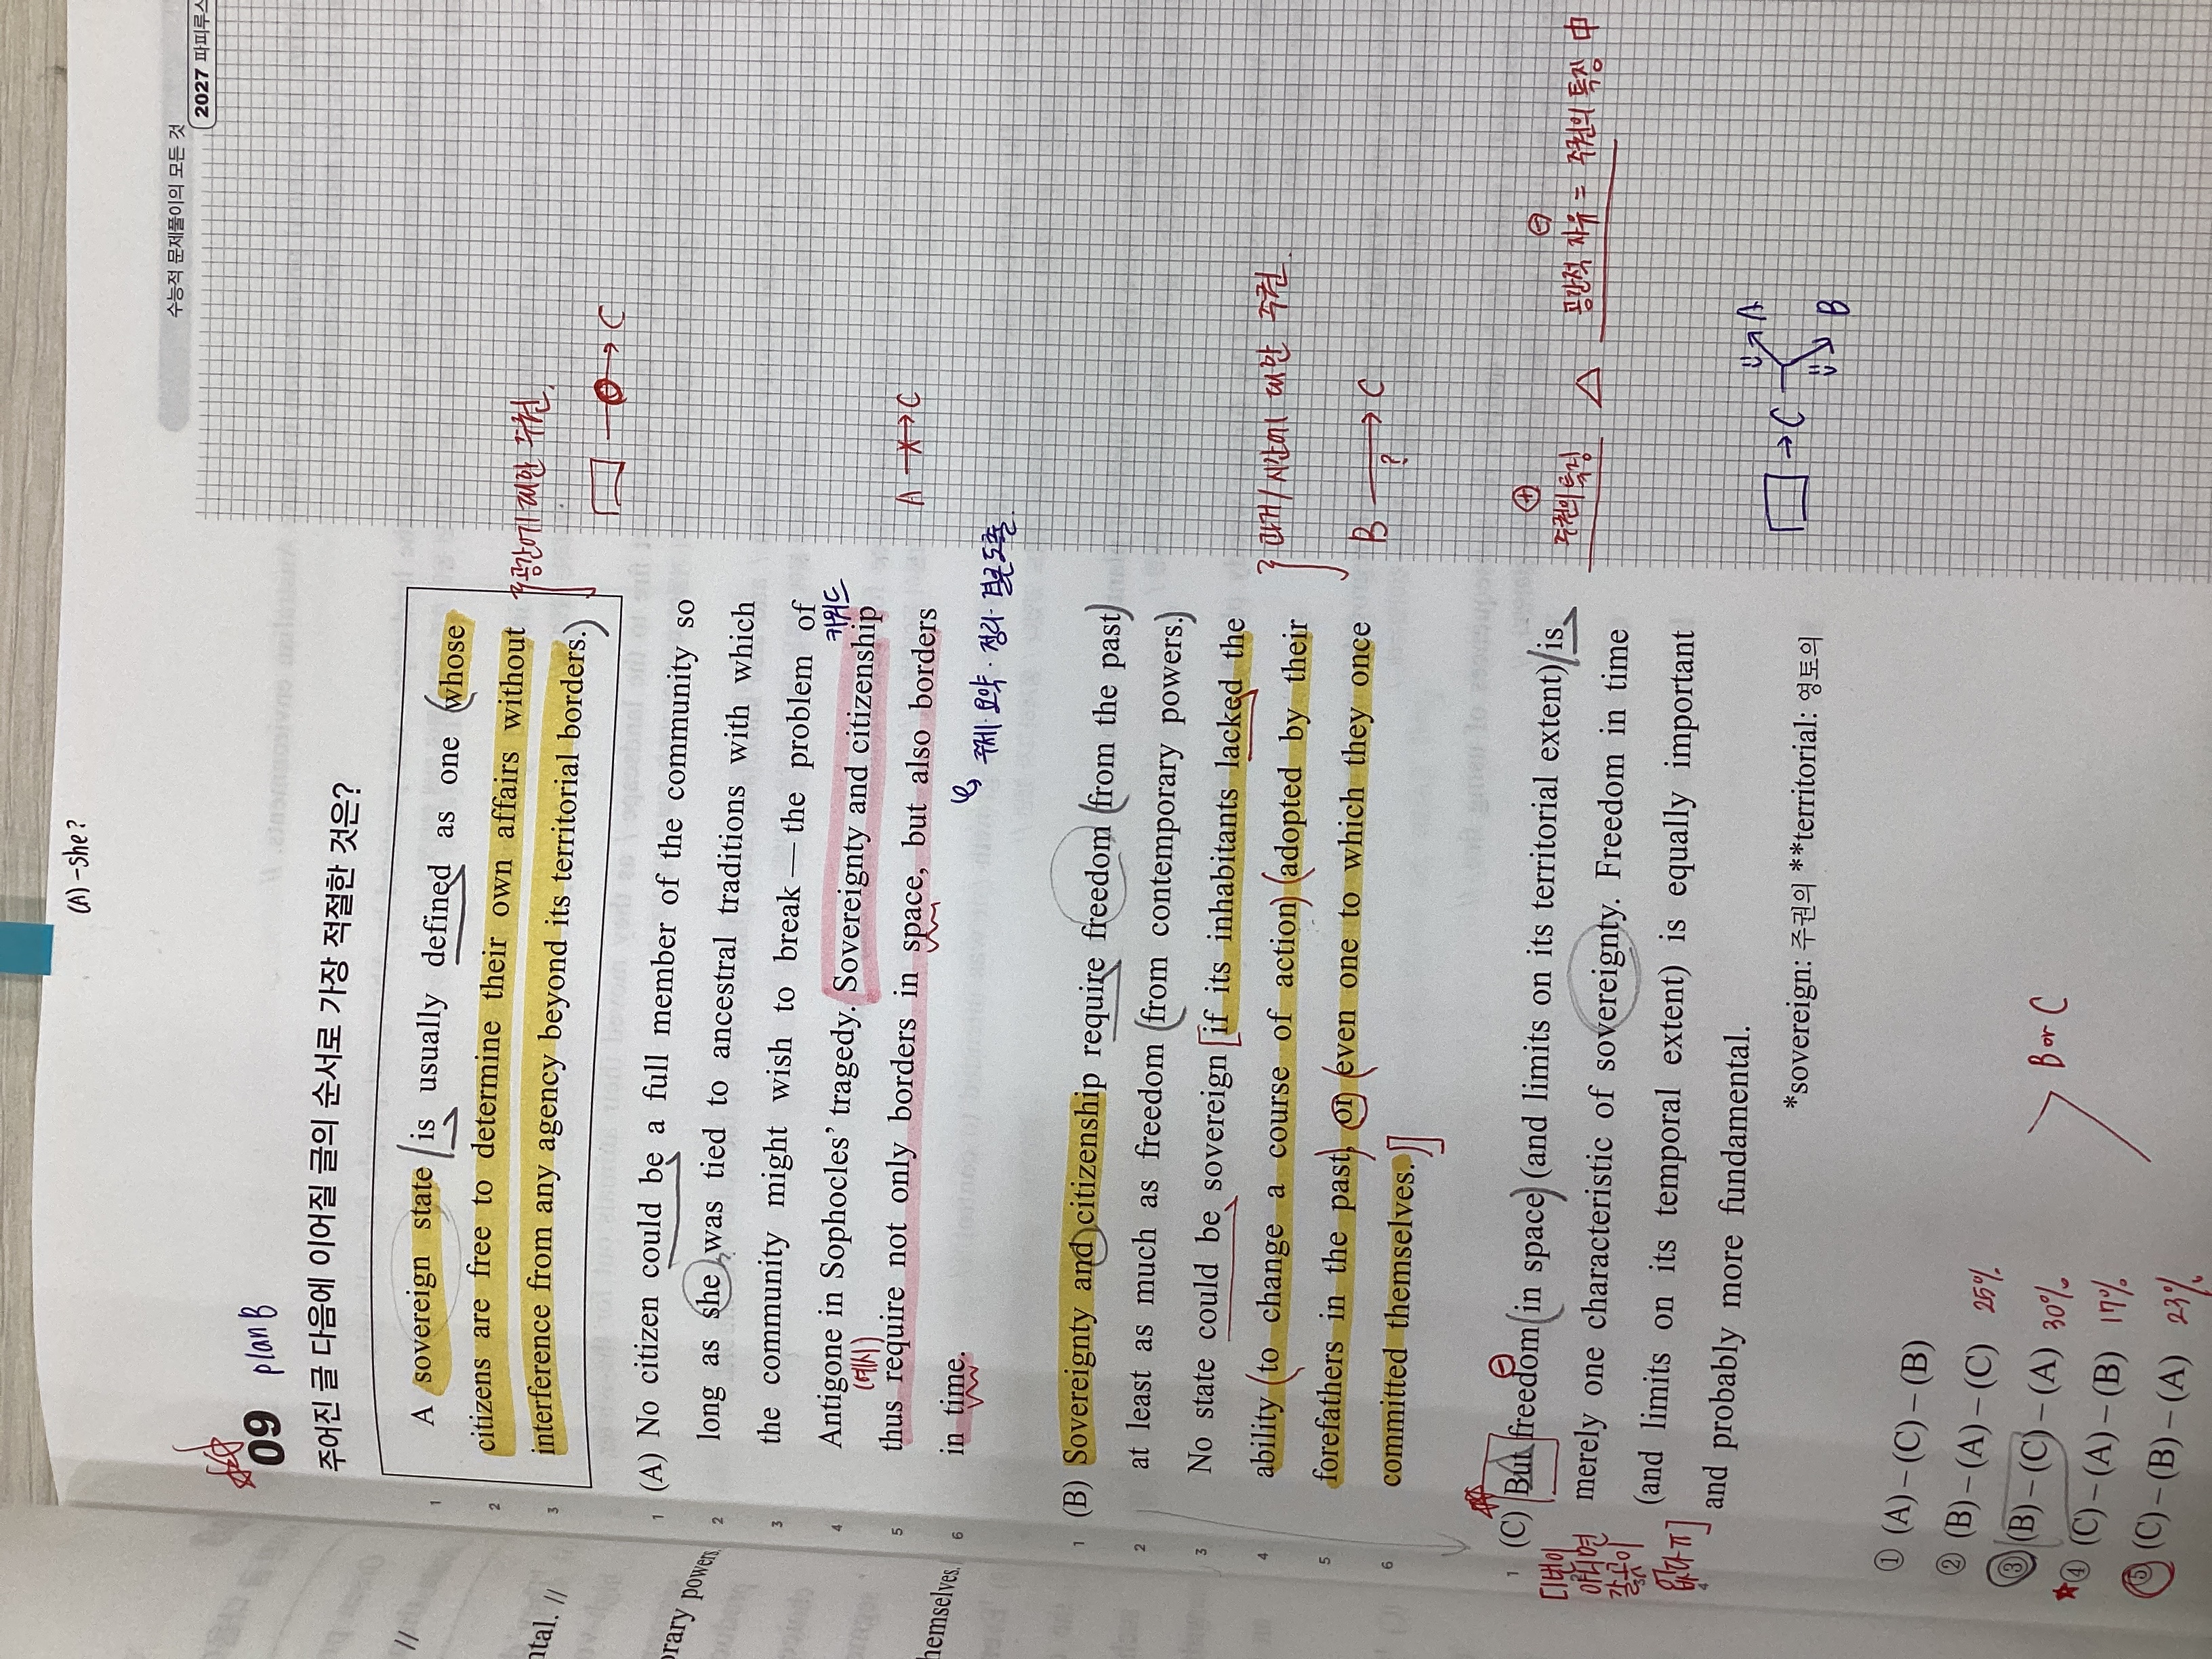 (A)-she?
수능적 문제풀이의 모든 것
2027 파피루스
09 plan B
주어진 글 다음에 이어질 글의 순서로 가장 적절한 것은?
1 A sovereign state is usually defined as one (whose
2 citizens are free to determine their own affairs without
3 interference from any agency beyond its territorial borders.)
공간에 대한 주권.
□ → C
1 (A) No citizen could be a full member of the community so
2 long as she was tied to ancestral traditions with which
3 the community might wish to break — the problem of
4 Antigone in Sophocles' tragedy. Sovereignty and citizenship
키워드
(예시)
5 thus require not only borders in space, but also borders
6 in time.
↳ 주제·요약·정리·결론 도출.
A → C
1 (B) Sovereignty and citizenship require freedom (from the past)
2 at least as much as freedom (from contemporary powers.)
3 No state could be sovereign [if its inhabitants lacked the
4 ability (to change a course of action) (adopted by their
5 forefathers in the past, or (even one to which they once
6 committed themselves.)]
과거/시간에 대한 주권.
B → C
?
1 (C) But freedom (in space) (and limits on its territorial extent) is
merely one characteristic of sovereignty. Freedom in time
(and limits on its temporal extent) is equally important
4 and probably more fundamental.
아니면
없다]
⊕ 주권의 특징 △ 공간적 자유 ⊖ = 주권의 특징 中
□ → C
A
B
*sovereign: 주권의 **territorial: 영토의
① (A) – (C) – (B)
② (B) – (A) – (C) 25%
③ (B) – (C) – (A) 30%
④ (C) – (A) – (B) 17%
⑤ (C) – (B) – (A) 23%
B or C
//
ntal. //
orary powers,
hemselves,